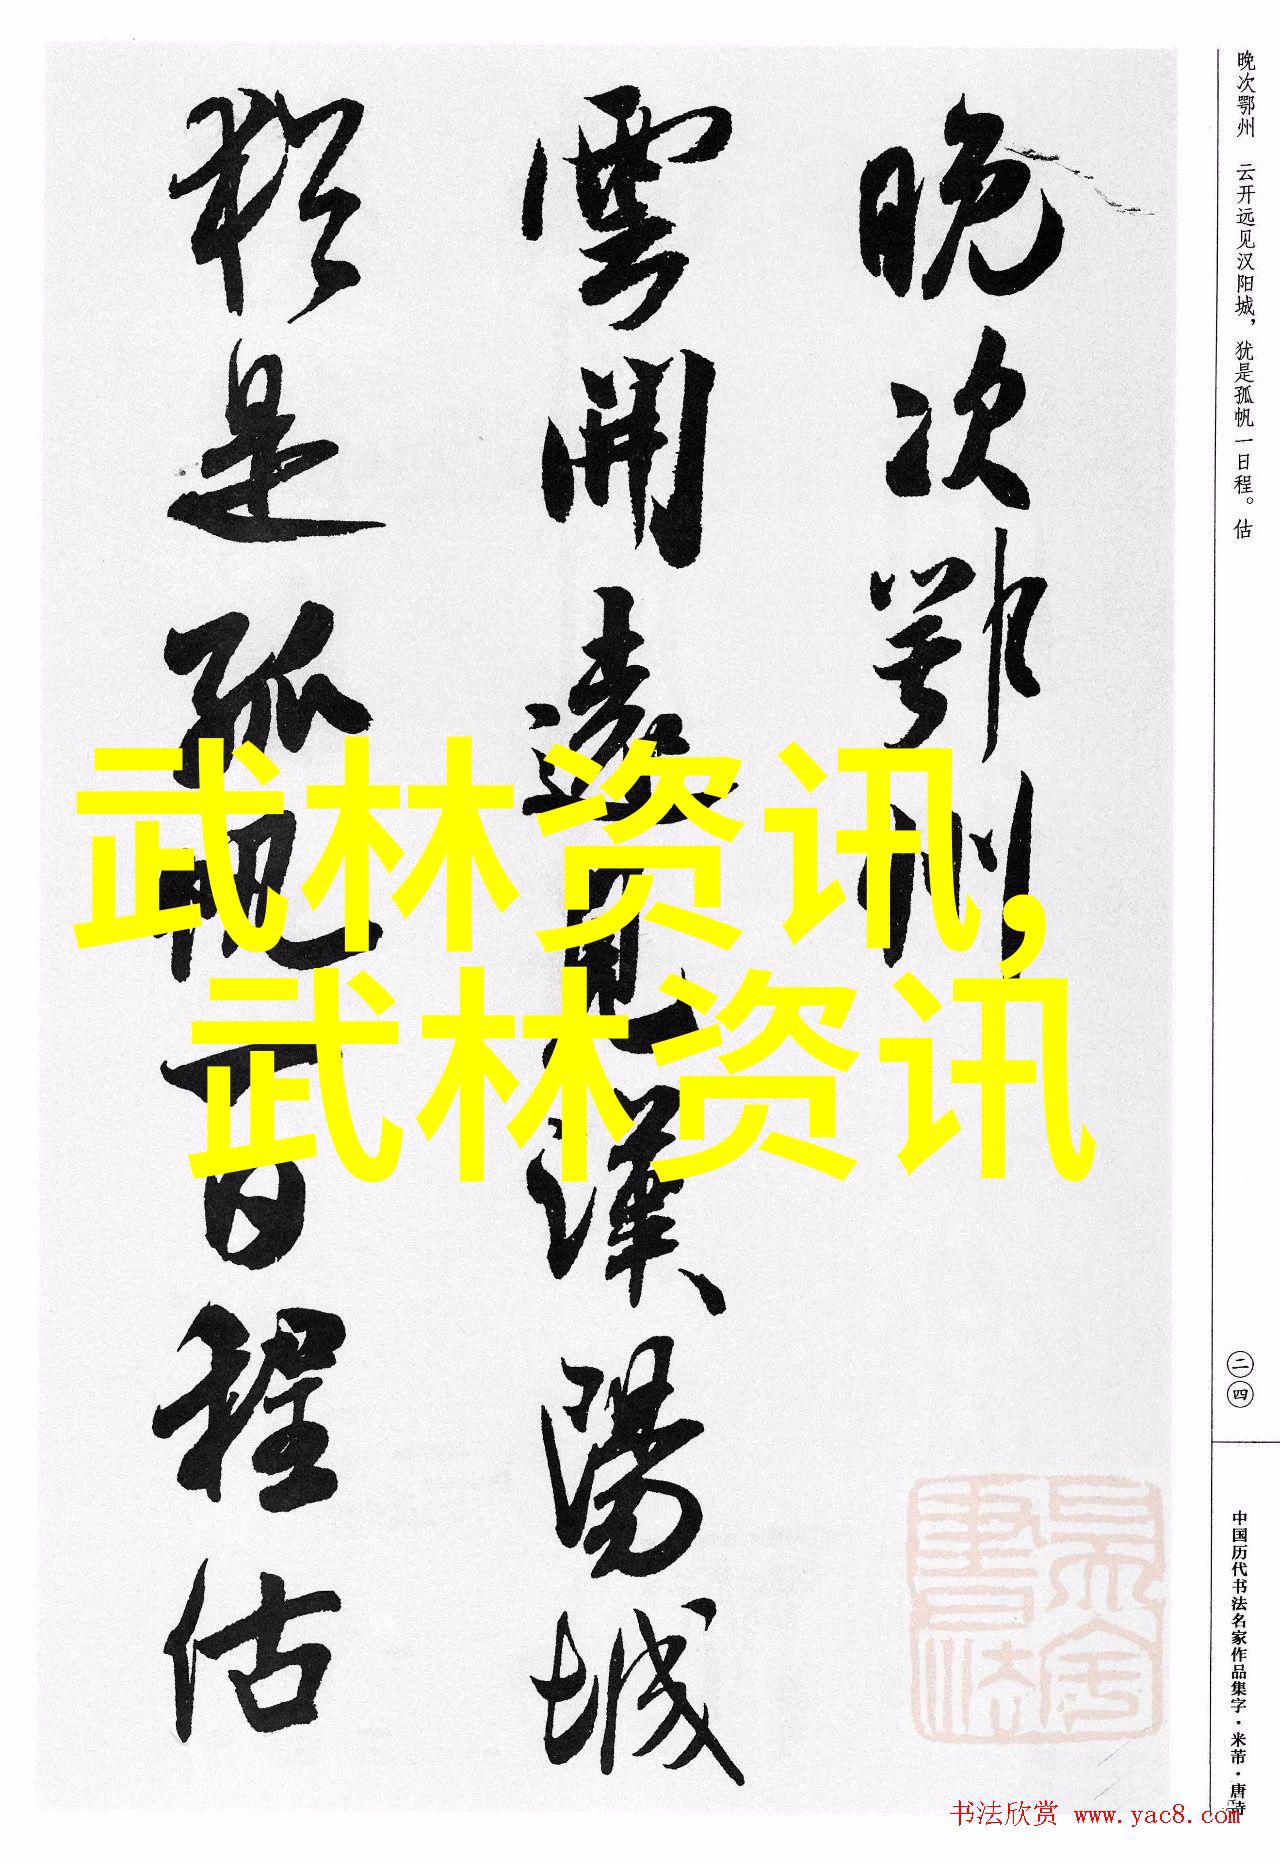 晚次鄂州
雲開遠見漢陽城
猶是孤帆一日程估
武林资讯,
武林资讯
晚次鄂州 云开远见汉阳城，犹是孤帆一日程。估
二四
中国历代书法名家作品集字·米芾·唐诗
书法欣赏 www.yac8.com